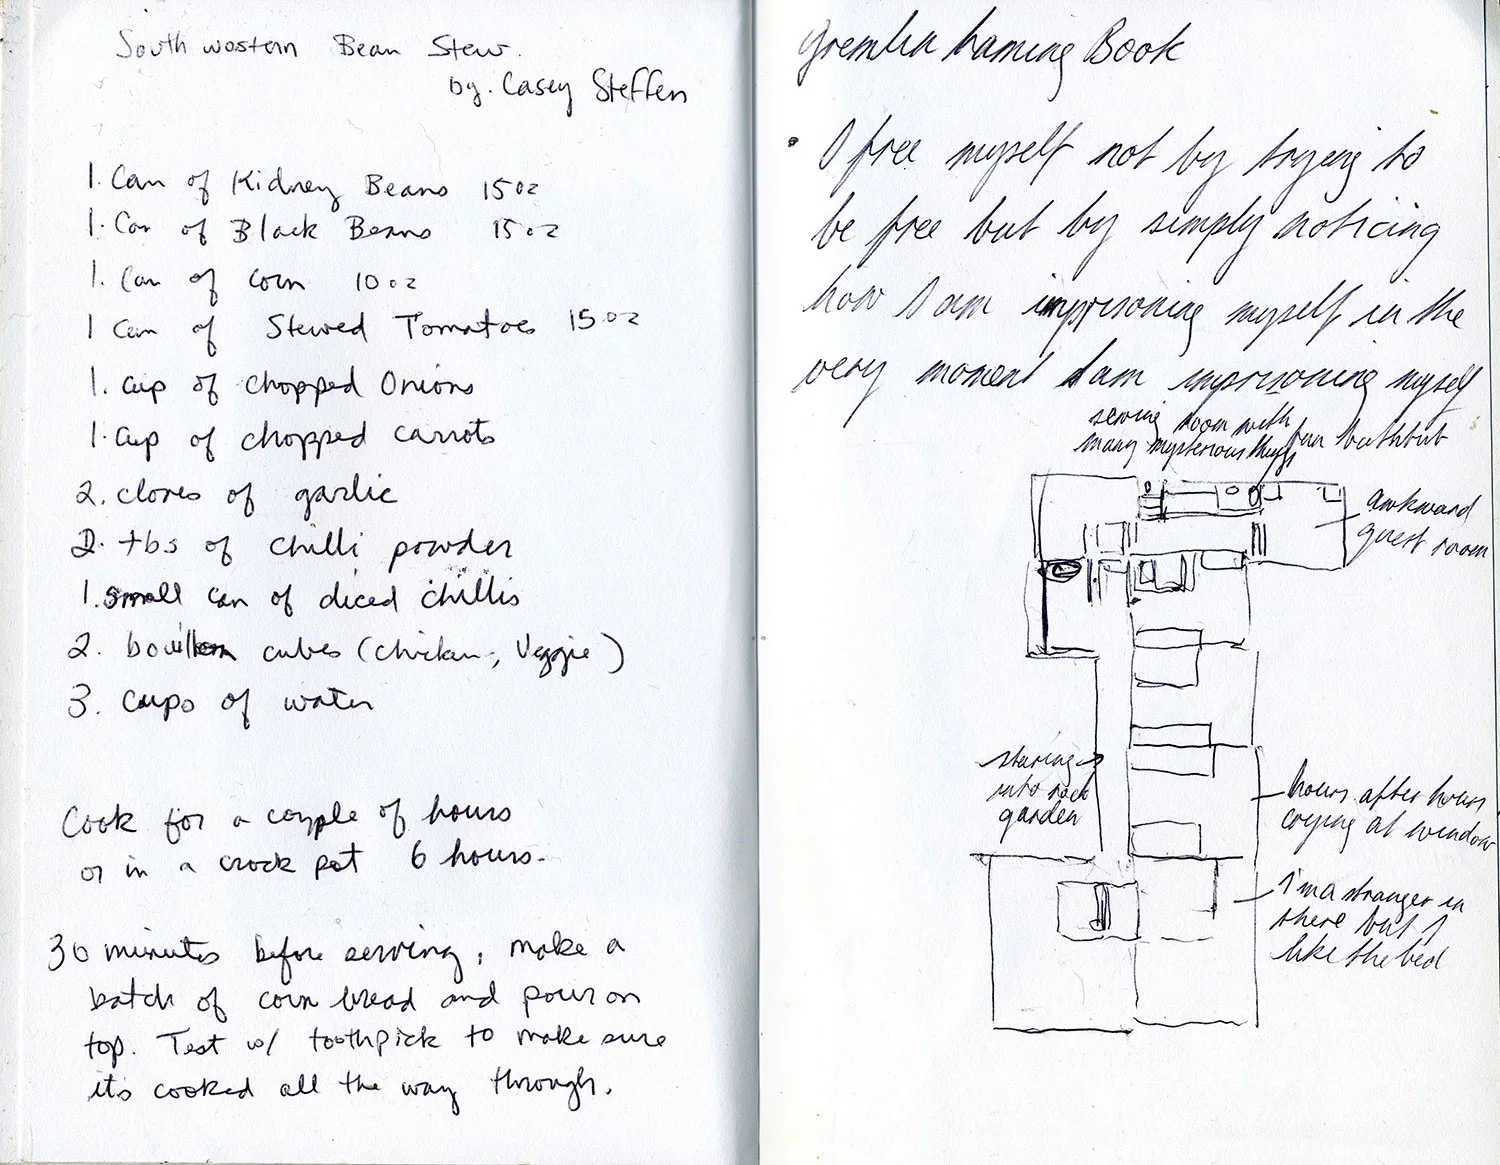 South western Bean Stew.
by. Casey Steffen
1. Can of Kidney Beans 15oz
1. Can of Black Beans 15oz
1. Can of corn 10oz
1 Can of Stewed Tomatoes 15oz
1. Cup of chopped Onions
1. Cup of chopped carrots
2. cloves of garlic
2. tbs of chilli powder
1. small can of diced chillis
2. bouillon cubes (chicken, Veggie)
3. cups of water
Cook for a couple of hours
or in a crock pot 6 hours.
30 minutes before serving, make a
batch of corn bread and pour on
top. Test w/ toothpick to make sure
its cooked all the way through.
Gremlin Taming Book
• I free myself not by trying to
be free but by simply noticing
how I am imprisoning myself in the
very moment I am imprisoning myself
sewing room with
many mysterious things
fun bathtub
awkward
guest room
staring
into rock
garden
hours after hours
crying at window
I'm a stranger in
there but I
like the bed